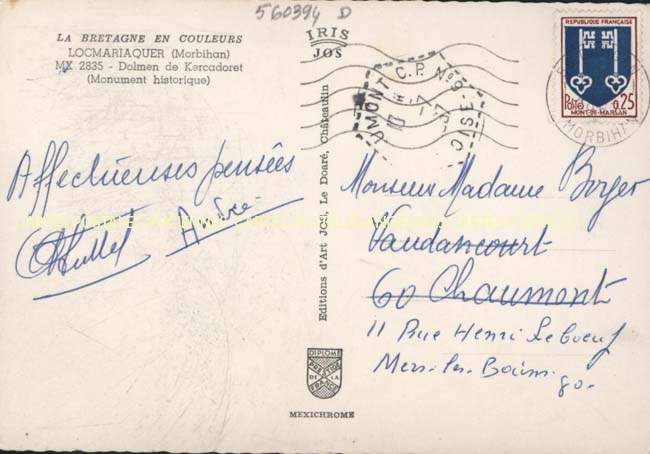 560394 D
LA BRETAGNE EN COULEURS
LOCMARIAQUER (Morbihan)
MX 2835 - Dolmen de Kercadoret
(Monument historique)
IRIS
JOS
REPUBLIQUE FRANÇAISE
POSTES 0,25
MONT-DE-MARSAN
MORBIHAN
C.P. Nº
Affectueuses pensées
André
Editions d'Art JOS, Le Doaré, Châteaulin
Monsieur Madame Borger
Vaudancourt
60 Chaumont
11 Rue Henri Leboeuf
Mers-les-Bains
80.
DIPLOME
PRESTIGE
DE LA
FRANCE
MEXICHROME